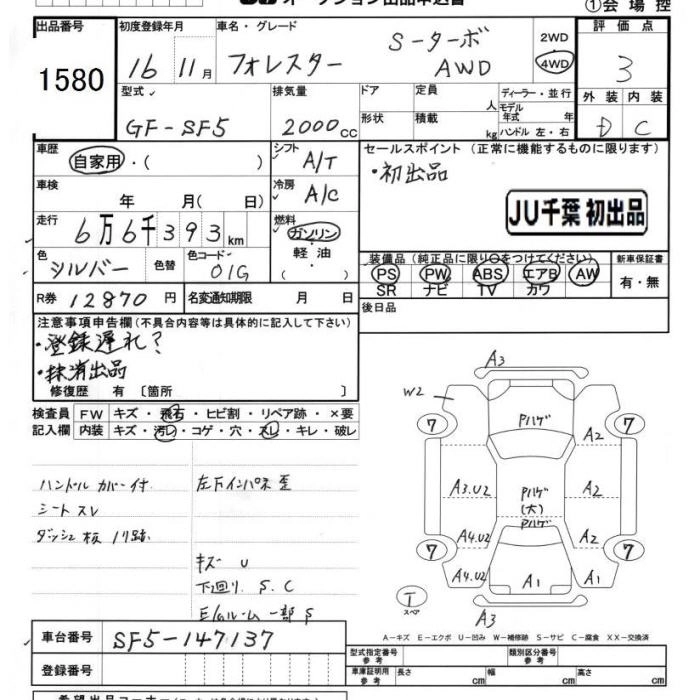 オークション出品申込書
①会場控
出品番号 初度登録年月 車名・グレード 評価点
1580 16 11月 フォレスター S-ターボ AWD 2WD 4WD 3
型式 排気量 ドア 定員 人 ディーラー・並行 外装 内装
GF-SF5 2000cc 形状 積載 kg モデル年式 年式 ハンドル 左・右 D C
車歴 自家用・( ) シフト A/T セールスポイント (正常に機能するものに限ります)
車検 年 月( 日) 冷房 A/C ・初出品
JU千葉 初出品
走行 6万6千393km 燃料 ガソリン 軽油 ( )
色 シルバー 色替 色コード 01G
装備品(純正品に限り○をつけてください) 新車保証書
PS PW ABS エアB AW 有・無
SR ナビ TV カワ
R券 12870円 名変通知期限 月 日 後日品
注意事項申告欄(不具合内容等は具体的に記入して下さい)
・登録遅れ?
・抹消出品
修復歴 有〔箇所 〕
検査員 FW キズ・飛石・ヒビ割・リペア跡・×要
記入欄 内装 キズ・汚レ・コゲ・穴・スレ・キレ・破レ
ハンドルカバー付 左下インパネ歪
シートスレ
ダッシュ板ノリ跡
キズ U
下廻り S.C
E/Gルーム一部S
A3
W2
7 Pハゲ 7
A2
A3.U2 Pハゲ(大) A2
Pハゲ
A4.U2 A2
7 7
A4.U2 A1 A1
T スペア
A3
A-キズ E-エクボ U-凹み W-補修跡 S-サビ C-腐食 XX-交換済
車台番号 SF5-147137
型式指定番号 参考 類別区分番号 参考
登録番号
車庫証明用 参考 長さ cm 幅 cm 高さ cm
希望出品コーナー